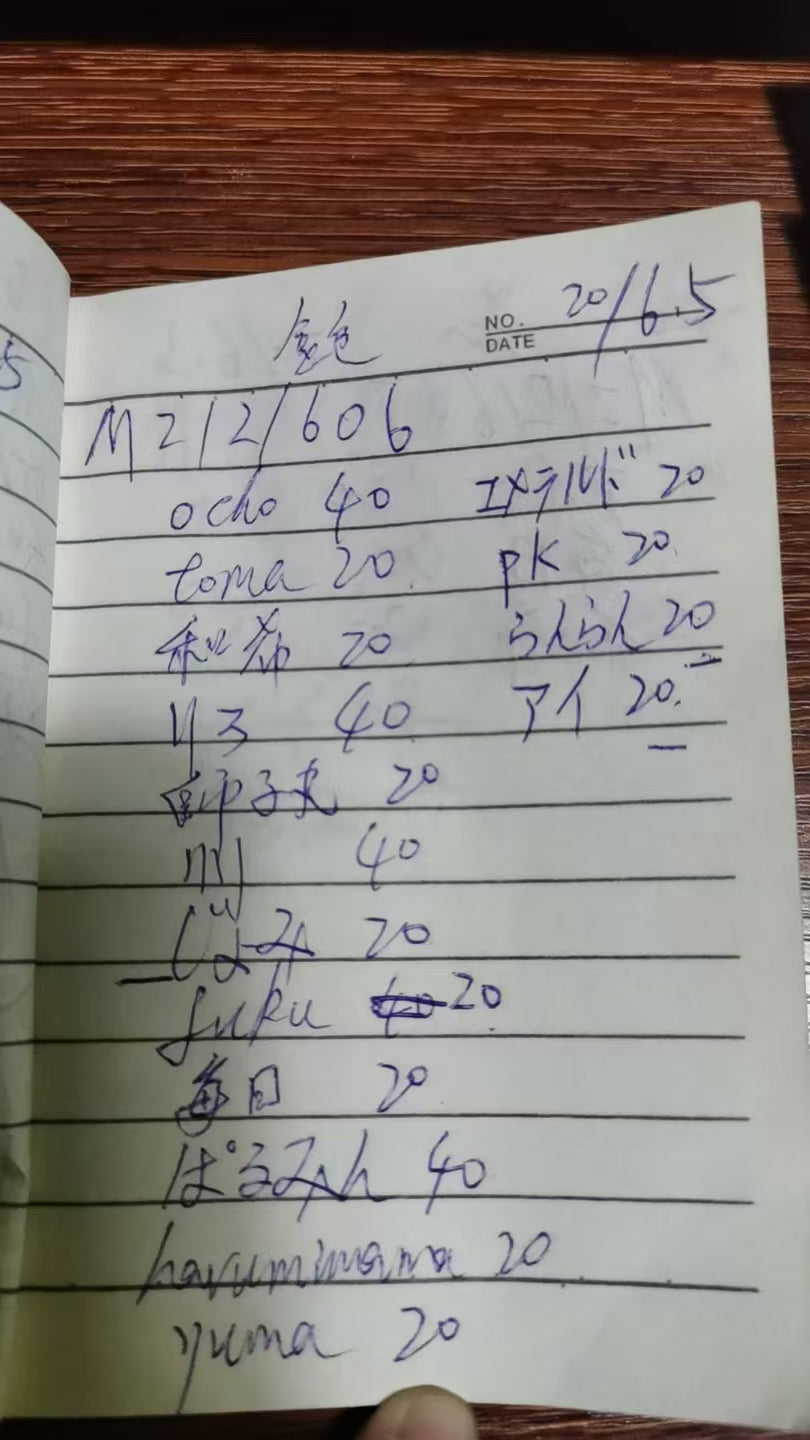 金色
NO.
DATE
20/6.5
M212/606
ocho 40
toma 20
和希 20
リヱ 40
子夫 20
40
じよみ 20
fuku 20
毎日 20
ぱるみん 40
harumimama 20
yuma 20
エメラルド 20
pk 20
らんらん 20
アイ 20
5